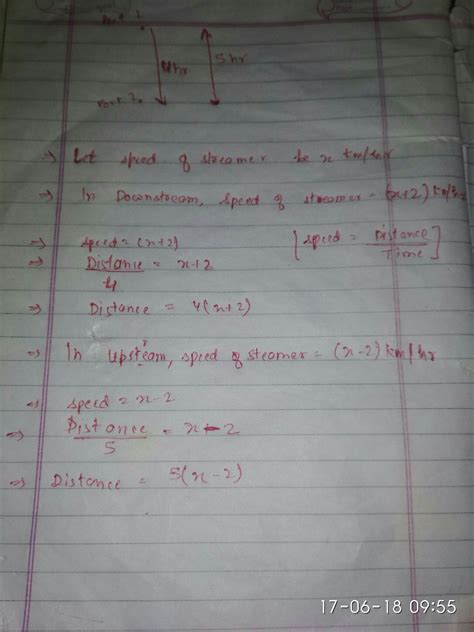 Port 1.
4hr
5 hr
Port 2.
=> Let speed of streamer be x km/hr
=> In Downstream, speed of streamer = (x+2) km/hr
=> speed = (x+2) [speed = Distance/Time]
=> Distance/4 = x+2
=> Distance = 4(x+2)
=> In upstream, speed of steamer = (x-2) km/hr
=> speed = x-2
=> Distance/5 = x-2
=> Distance = 5(x-2)
17-06-18 09:55